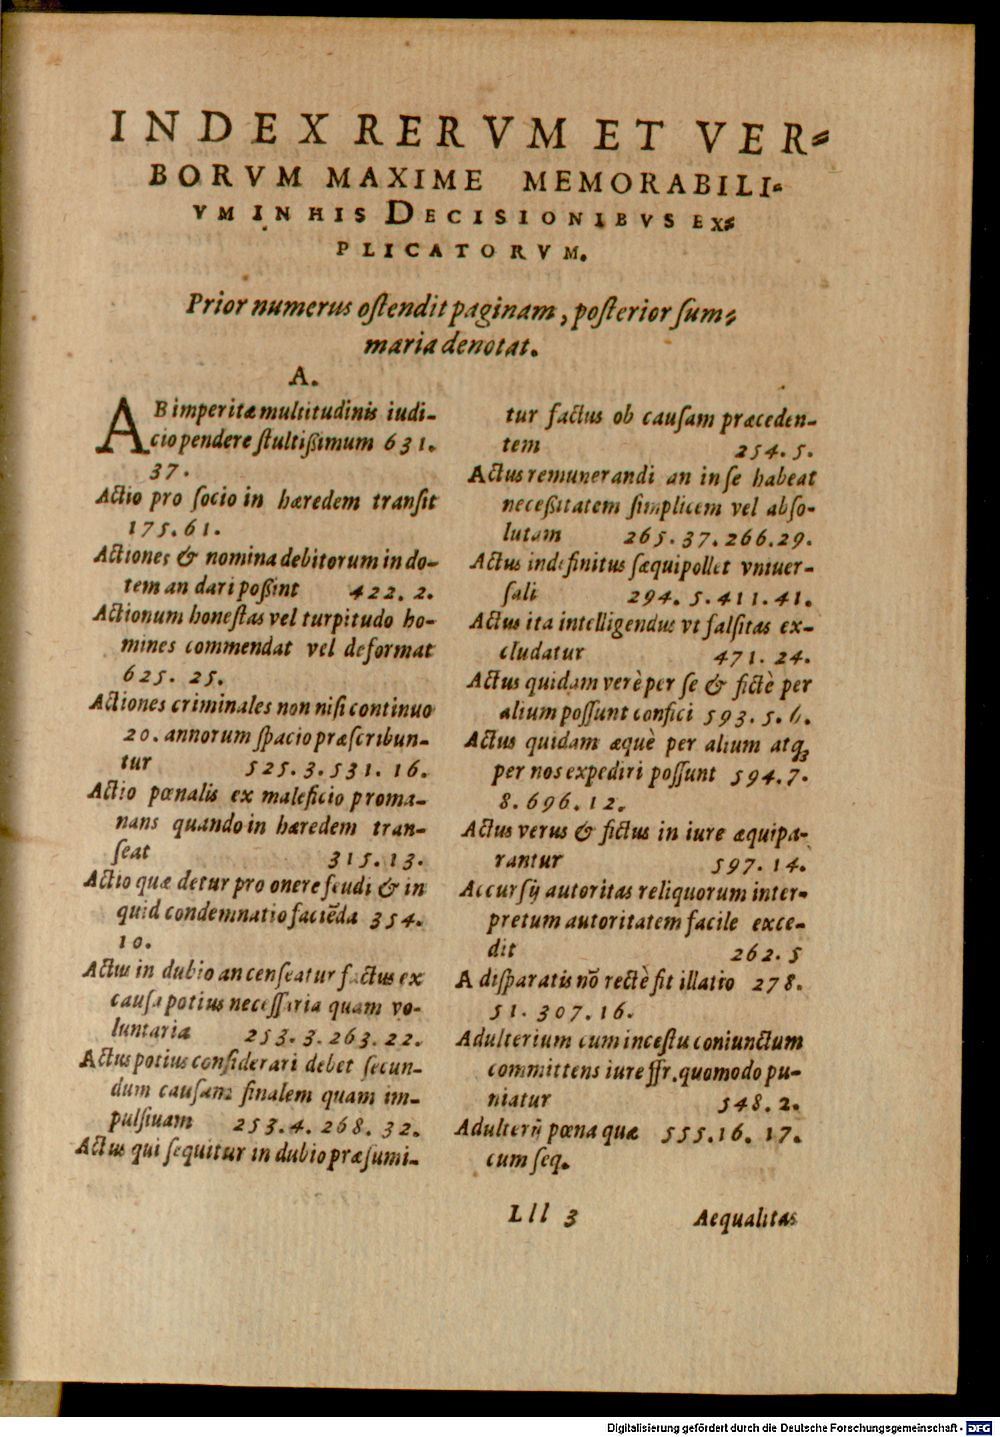 INDEX RERVM ET VER-
BORVM MAXIME MEMORABILI-
VM IN HIS DECISIONIBVS EX-
PLICATORVM.
Prior numerus oſtendit paginam, poſterior ſum-
maria denotat.
A.
AB imperitæ multitudinis iudi-
cio pendere ſtultiſſimum 631.
37.
Actio pro ſocio in hæredem tranſit
175.61.
Actiones & nomina debitorum in do-
tem an dari poßint 422. 2.
Actionum honeſtas vel turpitudo ho-
mines commendat vel deformat
625. 25.
Actiones criminales non niſi continuo
20. annorum ſpacio præſcribun-
tur 525.3.531. 16.
Actio pœnalis ex maleficio proma-
nans quando in hæredem tran-
ſeat 315.13.
Actio quæ detur pro onere feudi & in
quid condemnatio faciẽda 354.
10.
Actus in dubio an cenſeatur factus ex
cauſa potius neceſſaria quam vo-
luntaria 253.3.263.22.
Actus potius conſiderari debet ſecun-
dum cauſam finalem quam im-
pulſiuam 253.4. 268. 32.
Actus qui ſequitur in dubio præſumi-
tur factus ob cauſam præceden-
tem 254.5.
Actus remunerandi an in ſe habeat
neceßitatem ſimplicem vel abſo-
lutam 265.37.266.29.
Actus indefinitus ſæquipollet vniuer-
ſali 294. 5.411.41.
Actus ita intelligendus vt falſitas ex-
cludatur 471. 24.
Actus quidam verè per ſe & fictè per
alium poſſunt confici 593.5.6.
Actus quidam æquè per alium atq́;
per nos expediri poſſunt 594.7.
8.696.12.
Actus verus & fictus in iure æquipa-
rantur 597. 14.
Accurſij autoritas reliquorum inter-
pretum autoritatem facile exce-
dit 262.5
A diſparatis nõ rectè fit illatio 278.
51. 307.16.
Adulterium cum inceſtu coniunctum
committens iure ff. quomodo pu-
niatur 548.2.
Adulterij pœna quæ 555.16. 17.
cum ſeq.
Lll 3 Aequalitas
Digitalisierung gefördert durch die Deutsche Forschungsgemeinschaft - DFG